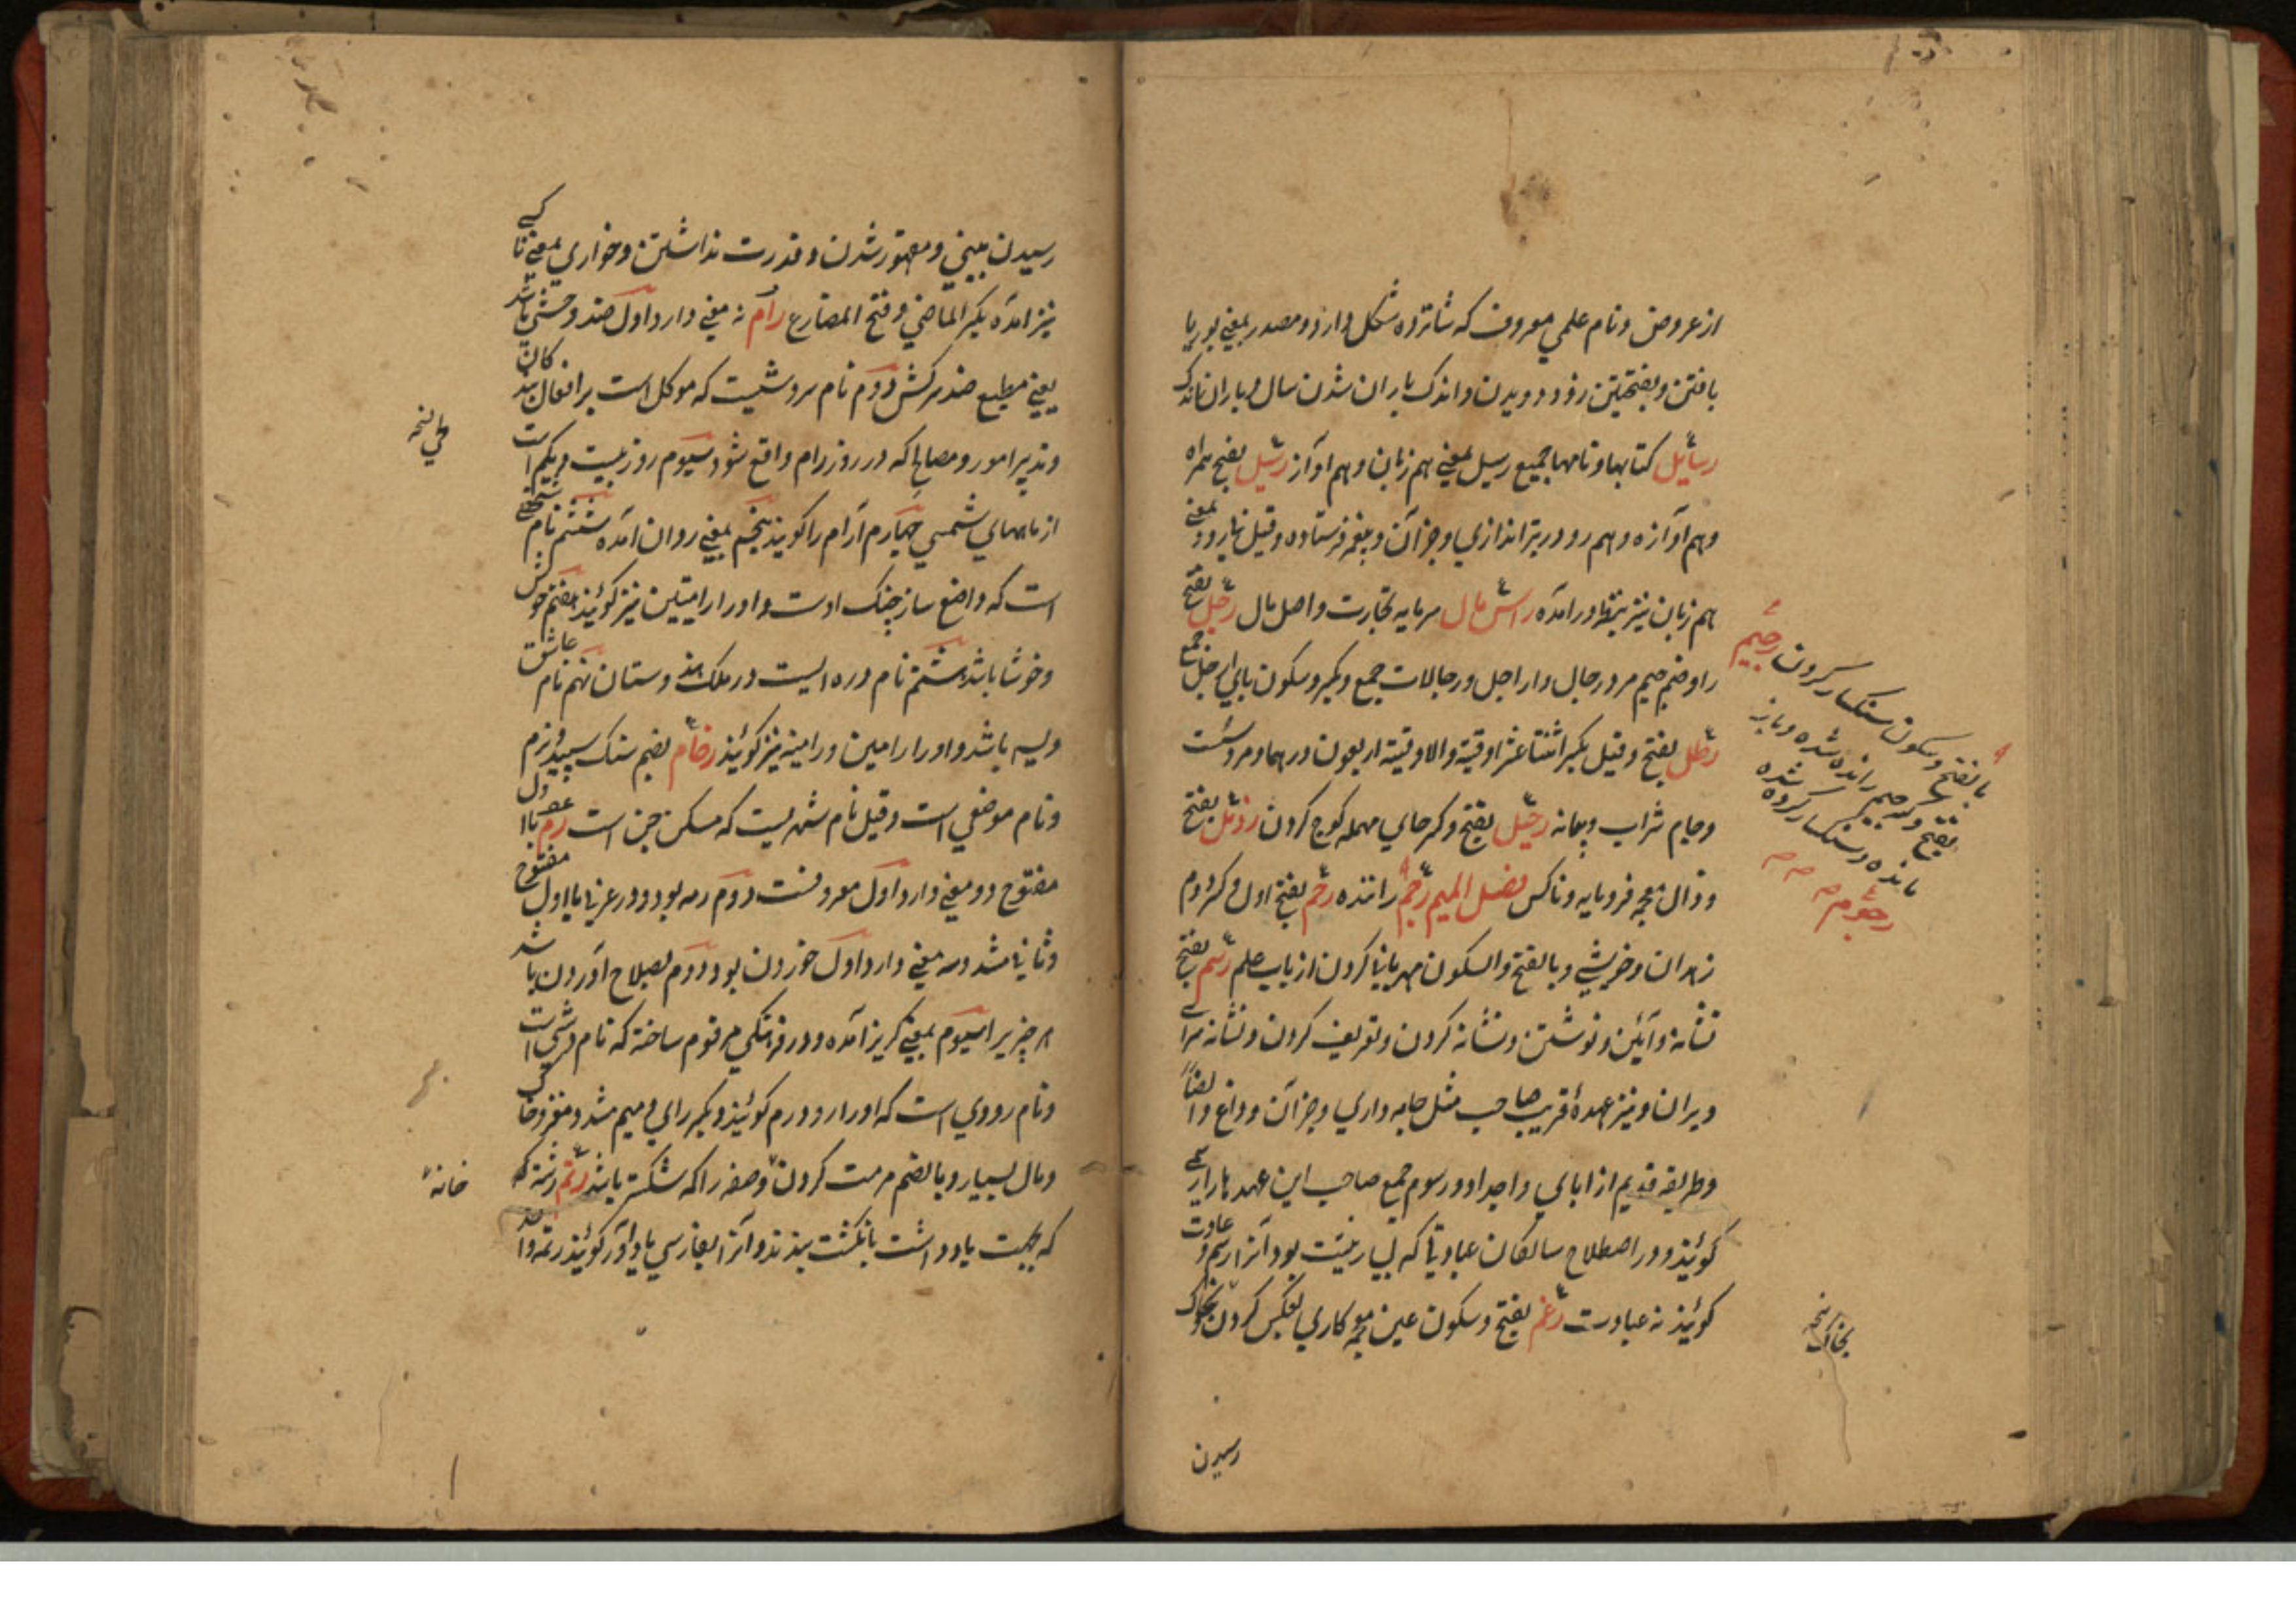 از عروض و نام علمي معروف كه شانزده شكل دارد و مصدر بمعني بوريا
بافتن و بفتحتين زود دويدن و اندك باران شدن سال و باران اندك
رسائل كتابها و نامها جميع رسيل بمعني هم زبان و هم اواز رسيل بفتح همراه
و هم آوازه و هم رو در تيراندازي و جز آن و پيغمبر فرستاده و قيل بمعني
هم زبان نيز بنظر در آمده راس مال سرمايه تجارت و اصل مال رجل بفتح
را و ضم جيم مرد رجال و اراجل و رجالات جمع و بكسر و سكون پاي ارجل جمع
رطل بفتح و قيل بكسر اثنتا عشر اوقية و الاوقية اربعون درهما و مرد سست
و جام شراب و پيمانه رحيل بفتح و كسر حاي مهمله كوچ كردن رذل بفتح
و ذال معجمه فرومايه و ناكس فصل الميم رجم راننده رحم بفتح اول و كسر دوم
زهدان و خويشي و بالفتح و السكون مهرباني كردن از باب علم رسم بفتح
نشانه و آئين و نوشتن و نشانه كردن و تعريف كردن و نشانه سراي
ويران و نيز عهدهٔ قريب صاحب مثل جامه داري و جز آن و وداع و ايضاً
و طريقه قديم از اباي و اجداد و رسوم جمع صاحب اين عهدها را رسمي
گوئيذ و در اصطلاح سالكان عبادتي كه بي نيت بود آنرا رسم و عادت
گوئيذ نه عبادت رغم بفتح و سكون غين معجمه كاري بعكس كردن بخاك
رسيدن
رجيم
بالفتح و سكون سنكسار كردن
بفتح و كسر جيم رانده شده و باز
مانده و سنكسار كرده شده
رجوم
رسيدن بيني و مقهور شدن و قدرت نداشتن و خواري بمعني تاكي
نيز آمده بكسر الماضي و فتح المضارع رام نه معني دارد اول ضد وحشي باشد
يعني مطيع ضد سركش دوم نام سروشيست كه موكل است بر افعال بندكان
و تدبير امور و مصالح كه در روز رام واقع شود سيوم روز بيست و يكم است
از ماههاي شمسي چهارم آرام را كويند پنجم بمعني روان آمده ششم نام شخصي
است كه واضع ساز چنك اوست و او را رامتين نيز كوئيند هفتم خوش
و خوشا باشد هشتم نام دره ايست در ملك هندوستان نهم نام عاشق
ويسه باشد و او را رامين و رامينه نيز كوئيذ رخام بضم سنك سپيد و نرم
و نام موضعي است و قيل نام شهريست كه مسكن جن است رم با اول
مفتوح دو معني دارد اول معروفست دوم رمه بود و در عربي با اول مفتوح
و ثاني مشدد سه معني دارد اول خوردن بود دوم بصلاح آوردن باشد
هر چيز را سيوم بمعني كريز آمده و در فرهنكي مرقوم ساخته كه نام شهري است
و نام رودي است كه او را رودرم كوئيذ و بكسر راي و ميم مشدد مغز
و مال بسيار و بالضم مرمت كردن و صفه را كه شكسته باشد رتم رشته
كه بجهت ياد داشت بانگشت بندند و آنرا بفارسي ياد آور كوئيذ رتمه واحد
خانه